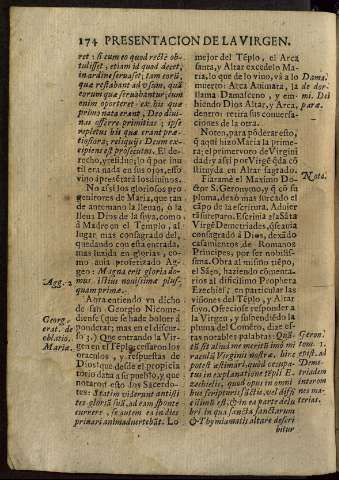 174 PRESENTACION DE LA VIRGEN.
ret: si cum eo quod rectè ob-
tulisset, etiam id quod decet,
in ordine seruasset; tam eorũ,
quæ restabant ad vsum, quã
eorum quæ seruabantur; cum
enim oporteret ex his quæ
primo nata erant, Deo diui-
nas offerre primitias; ipse
repletus his quæ erant præ-
tiosora; reliquijs Deum ex-
cipiens est prosecutus. El de-
recho, y tildin; lo q̃ por inu-
til era nada en sus ojos, esso
vino à presentar à los diuinos.
No assi los gloriosos pro
genitores de Maria, que tan
de antemano la lleuan, ò la
lleua Dios de la suya, como
à Madre en el Templo, al
lugar mas consagrado del,
quedando con esta entrada,
mas luzida en glorias, co-
mo auia profetizado Ag-
geo: Magna erit gloria do-
mus istius nouissima plus-
quam primæ.
Agg. 2
Aora entiendo vn dicho
de san Georgio Nicome-
diense (que se ha de boluer à
ponderar; mas en el discur-
so 3.) Que entrando la Vir-
gen en el Tẽplo, cessaron los
oraculos, y respuestas de
Dios que desde el propicia
torio daua a su pueblo, y que
notaron esto los Sacerdo-
tes: Statim viderunt antisti
tes gloriã suã, ad eam sponte
currere, se autem ea indies
priuari animaduertebãt. Lo
Georg.
orat. de
oblatio.
Mariæ.
mejor del Tẽplo, el Arca
santa, y Altar excedelo Ma-
ria, lo que de lo vino, và à lo
mejor: Arca Animata, la
llama Damasceno, y em-
biendo Dios Altar, y Arca,
dentro: retira sus conuersa-
ciones de la otra.
Dama.
de dor-
mi. Dei
paræ.
Noten, para põderar esto,
q̃ aqui hizo Maria la prime-
ra; el primer voto de Virgini
dad; y assi por Virgẽ q̃da cõ
stituyda en Altar sagrado.
Nota.
Fixarame el Maximo Do-
ctor S. Geronymo, y q̃ cõ su
pluma, dexò mas surcado el
cãpo de la escritura, Adbier
tã su reparo. Escriuia à la Sãta
Virgẽ Demetriades, q̃ se auia
consagrado à Dios, dexãdo
casamientos de Romanos
Principes, por ser nobilis-
sima. Obra al mismo tiẽpo,
el Sãto, haziendo comenta-
rios al dificilimo Propheta
Ezechiel; en particular las
visiones del Tẽplo, y Altar
souo. Ofreciose responder a
la Virgen, y suspendiẽdo la
pluma del Comẽto, dize es-
tas notables palabras: Quã-
quã sit animi mei certè imi tom
raculũ Virginis nostræ, hic
potest æstimari, quòd occupa-
tus in explanatione tẽpli E-
zechielis, quod opus in omni-
bus scripturis sãctis, vel diffi
cillimũ est, & in ea parte delu
bri in qua sancta sanctarum
& Thymiamatis altare descri
bitur
Geron.
tom. 1.
epist. ad
Deme-
triadem
interom
nes ma-
terias.